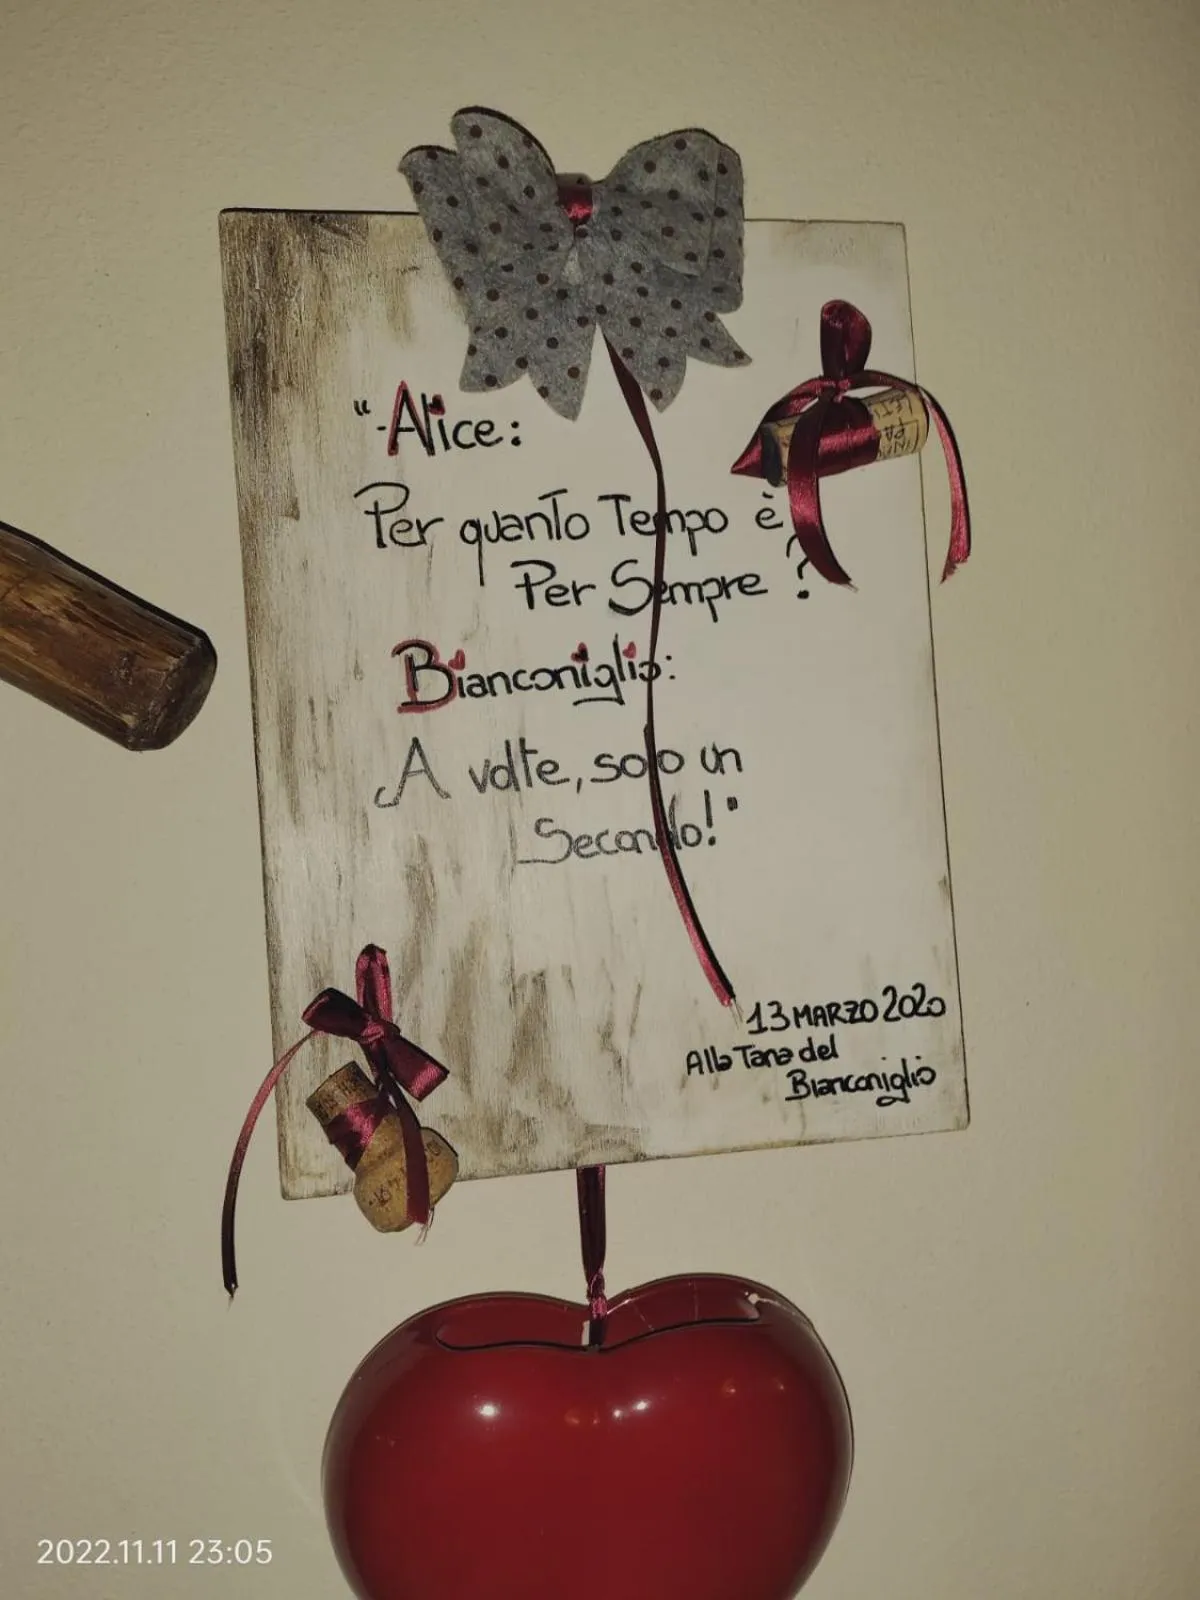 "Alice:
Per quanto Tempo è
Per Sempre ?
Bianconiglio:
A volte, solo un
Secondo!"
13 MARZO 2020
Alla Tana del
Bianconiglio
2022.11.11 23:05